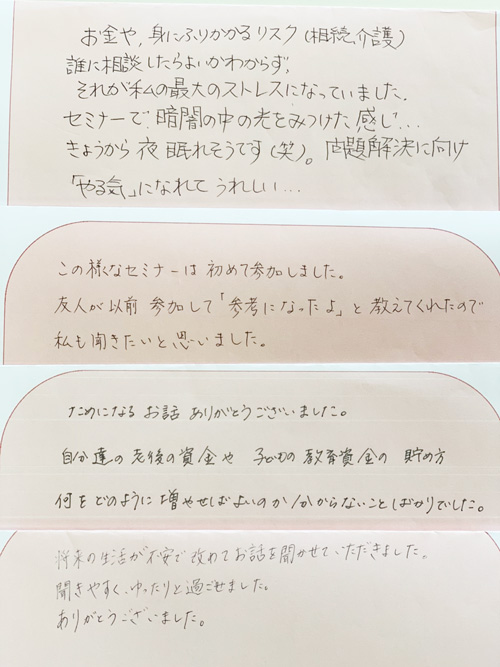 お金や,身にふりかかるリスク(相続,介護)
誰に相談したらよいかわからず,
それが私の最大のストレスになっていました.
セミナーで,暗闇の中の光をみつけた感じ...
きょうから夜眠れそうです(笑)。問題解決に向け
「やる気」になれてうれしい...
この様なセミナーは初めて参加しました。
友人が以前参加して「参考になったよ」と教えてくれたので
私も聞きたいと思いました。
ためになるお話ありがとうございました。
自分達の老後の資金や子どもの教育資金の貯め方
何をどのように増やせばよいのか分からないことばかりでした。
将来の生活が不安で改めてお話を聞かせていただきました。
聞きやすく、ゆったりと過ごせました。
ありがとうございました。